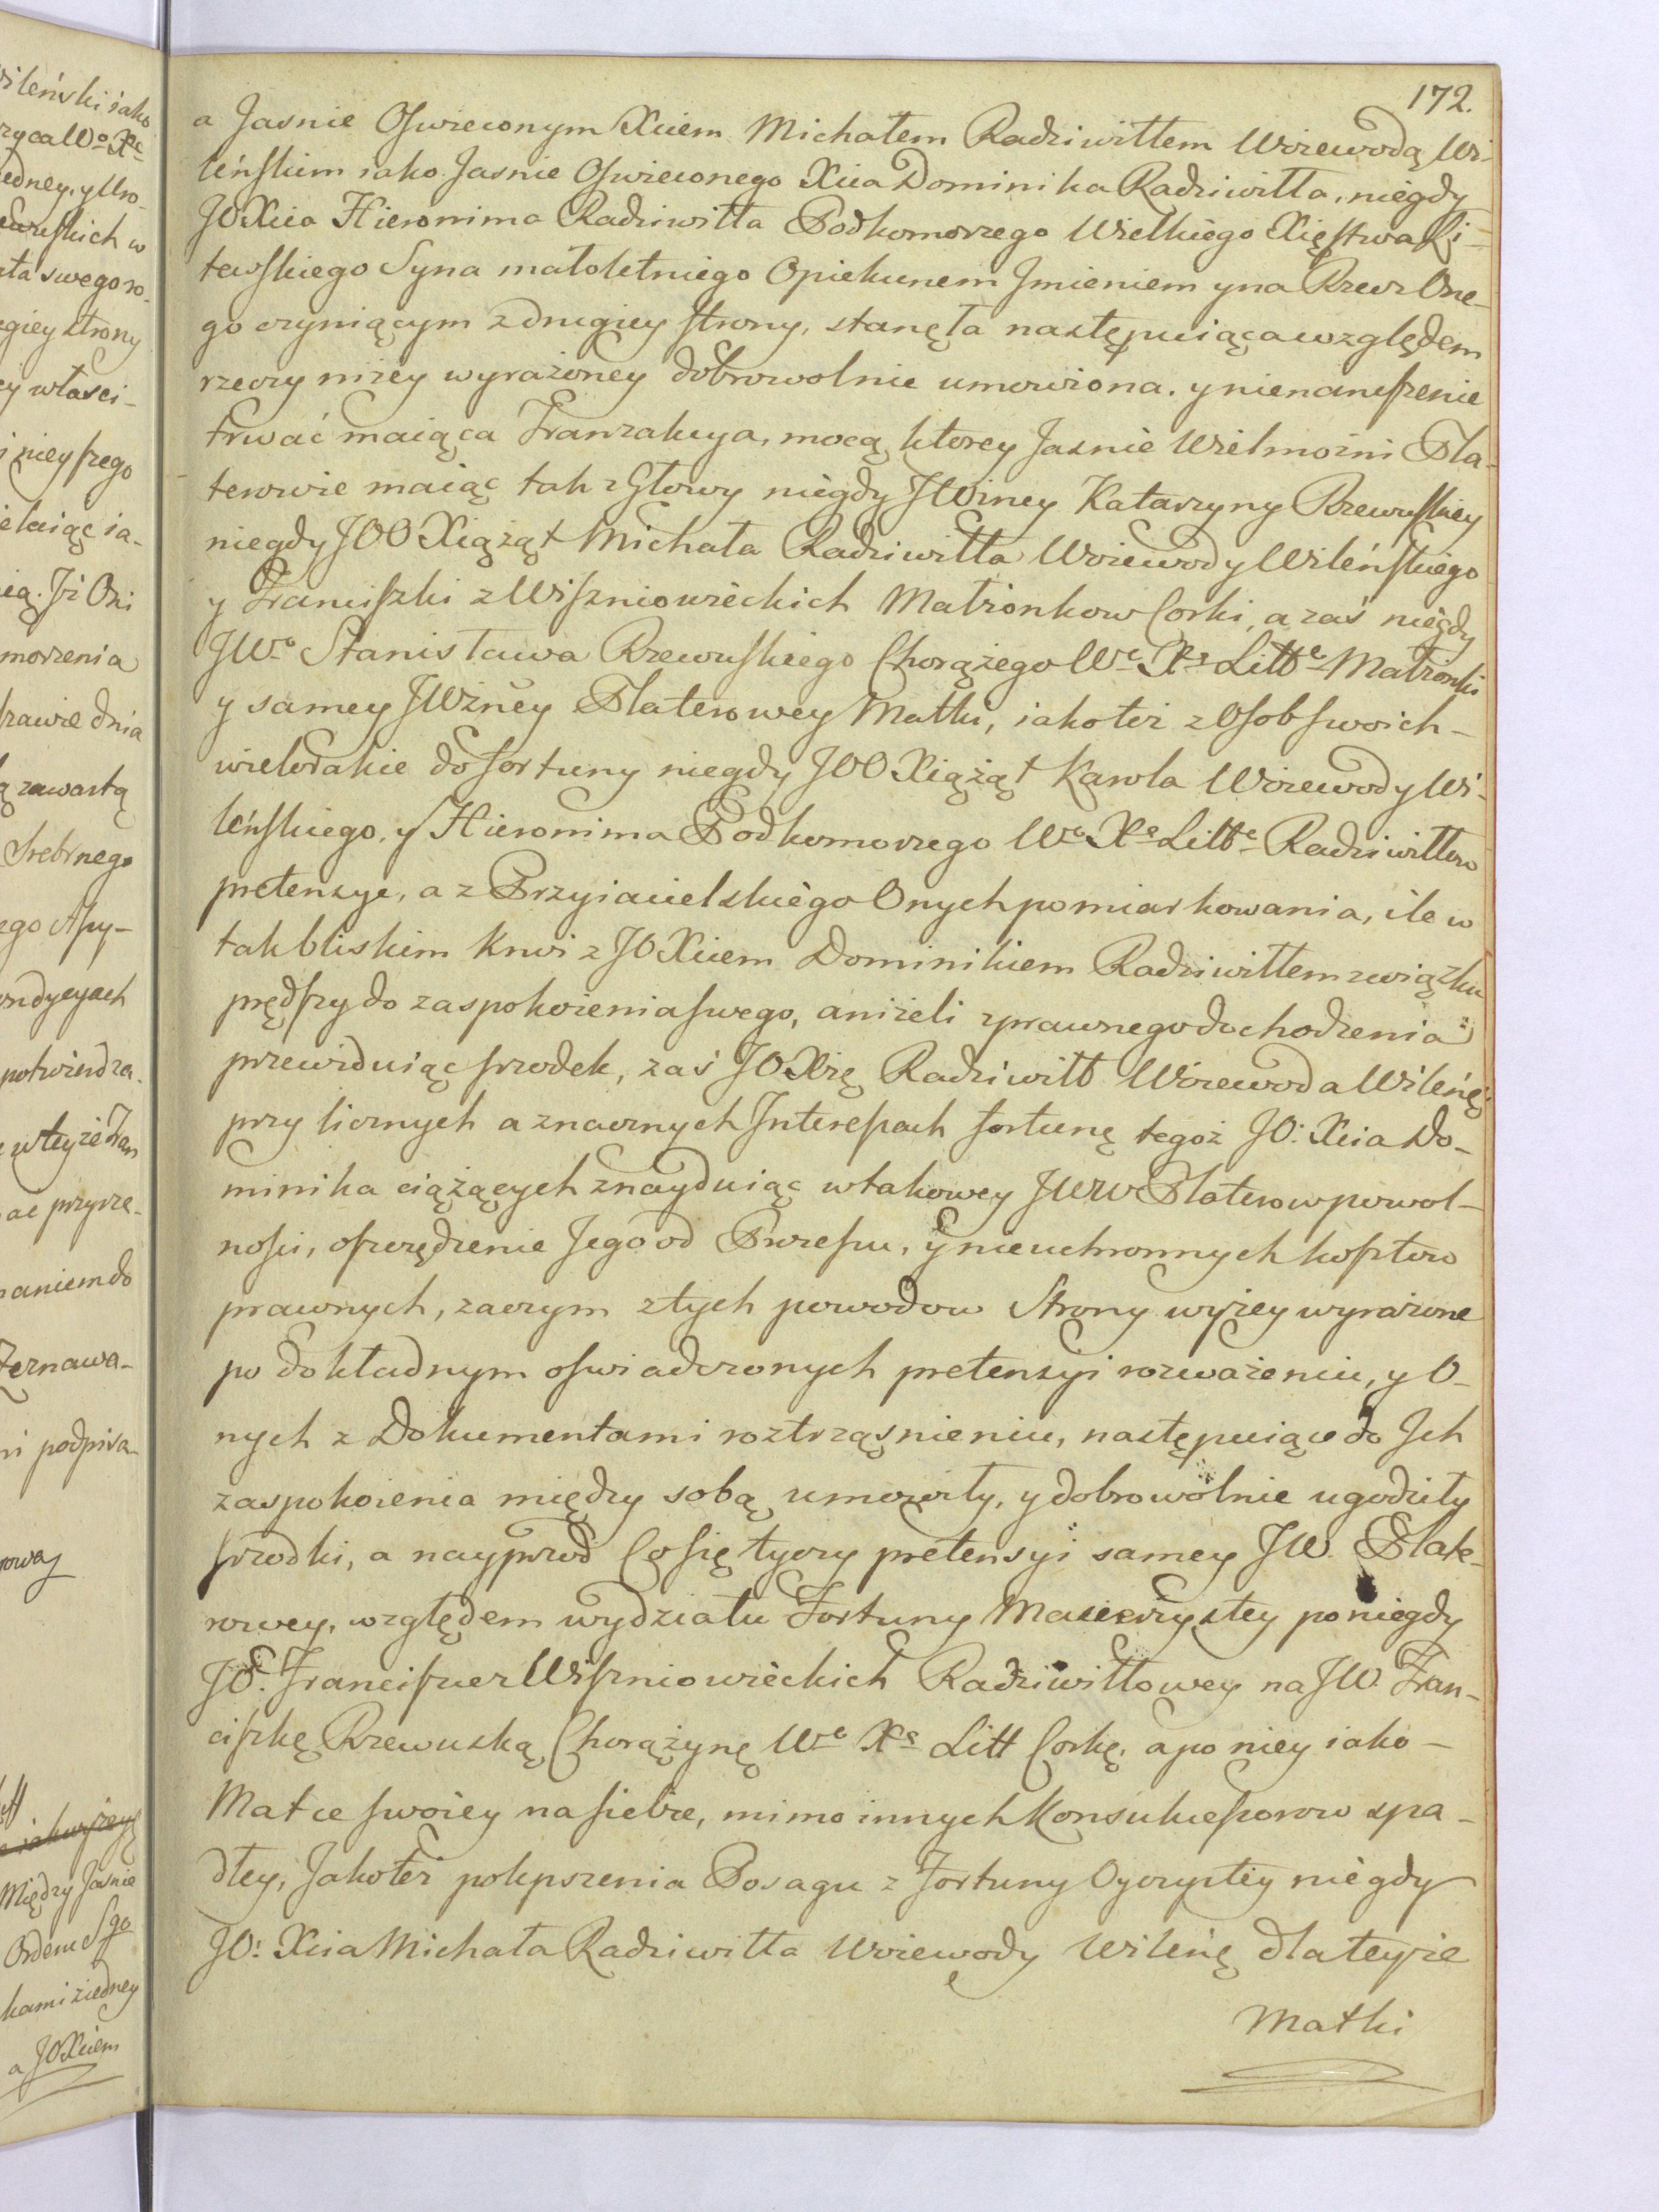 172.
a Jasnie Oswieconym Xciem Michałem Radziwiłłem Woiewodą Wi-
leńskim iako Jasnie Oswieconego Xcia Dominika Radziwiłła, niegdy
JO Xcia Hieronima Radziwiłła Podkomorzego Wielkiego Xięstwa Li-
tewskiego Syna małoletniego Opiekunem Jmieniem y na Rzecz One-
go czyniącym z drugiey strony, stanęła następuiąca względem
rzeczy niżey wyrażoney dobrowolnie umowiona, y nienaruszenie
trwać maiąca Tranzakcya, mocą ktorey Jasnie Wielmożni Pla-
terowie maiąc tak z Głowy niegdy JWżney Katarzyny Rzewuskiey
niegdy JOO Xiążąt Michała Radziwiłła Woiewody Wileńskiego
y Franciszki z Wiszniowieckich Małżonkow Corki, a zaś niegdy
JWo Stanisława Rzewuskiego Chorążego Wo Xa Litto Małżonki
y samey JWżney Platerowey Matki, iako też z Osob swoich-
wielorakie do fortuny niegdy JOO Xiążąt Karola Woiewody Wi-
leńskiego, y Hieronima Podkomorzego Wo Xa Litto Radziwiłłow
pretensye, a z Przyiacielskiego Onych pomiarkowania, ile w
tak bliskim Krwi z JO Xciem Dominikiem Radziwiłłem związku
prędszy do zaspokoienia swego, aniżeli z prawnego dochodzenia
przewiduiąc srzodek, zaś JO Xżę Radziwiłł Woiewoda Wileńs:
przy licznych a znacznych Interessach fortunę tegoż JO: Xcia Do-
minika ciążących znayduiąc w takowey JWW Platerow powol-
nosci, oszczędzenie Jego od Processu, y nieuchronnych kosztow
prawnych, zaczym z tych powodow Strony wyżey wyrażone
po dokładnym oswiadczonych pretensyi rozważeniu, y O-
nych z Dokumentami roztrząsnieniu, następuiące do Jch
zaspokoienia między sobą umowiły, y dobrowolnie ugodziły
srzodki, a nayprzod Co się tyczy pretensyi samey JW. Plate-
rowey, względem wydziału Fortuny Macierzystey po niegdy
JO. Franciszce z Wiszniowieckich Radziwiłłowey na JW. Fran-
ciszkę Rzewuską Chorążynę Wo Xa Litt Corkę, a po niey iako-
Matce swoiey na siebie, mimo innych Konsukcessorow spa-
dłey, Jako też polepszenia Posagu z Fortuny Oyczystey niegdy
JO: Xcia Michała Radziwiłła Woiewody Wileńs: dla teyże
Matki